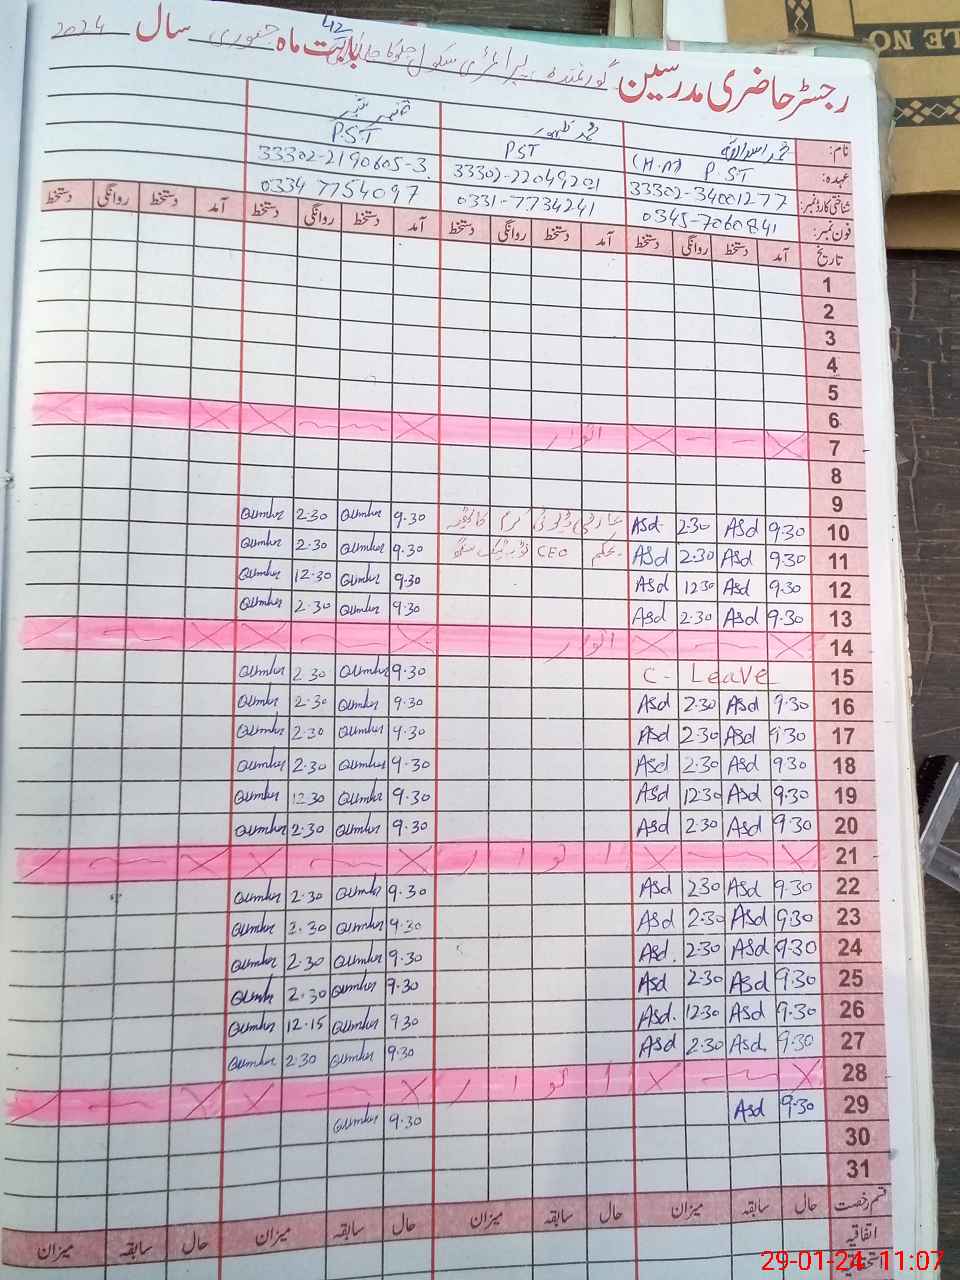 رجسٹر حاضری مدرسین گورنمنٹ پرائمری سکول بابت ماہ جنوری سال 2024
42
LE NO
نام: محمد اسد اللہ محمد ظہور
عہدہ: P.ST (H.M) PST P.S.T
شناختی کارڈ نمبر: 33302-34001277 33302-22049201 33302-2190605-3
فون نمبر: 0345-7060841 0331-7734241 0334 7754097
تاریخ آمد دستخط روانگی دستخط آمد دستخط روانگی دستخط آمد دستخط روانگی دستخط آمد دستخط روانگی دستخط
1
2
3
4
5
6
7 اتوار
8
9
10 9.30 Asd 2.30 Asd عارضی ڈیوٹی 9.30 Qumber 2.30 Qumber
11 9.30 Asd 2.30 Asd بحکم CEO 9.30 Qumber 2.30 Qumber
12 9.30 Asd 12.30 Asd 9.30 Qumber 12.30 Qumber
13 9.30 Asd 2.30 Asd 9.30 Qumber 2.30 Qumber
14 اتوار
15 C- Leave 9.30 Qumber 2.30 Qumber
16 9.30 Asd 2.30 Asd 9.30 Qumber 2.30 Qumber
17 9.30 Asd 2.30 Asd 9.30 Qumber 2.30 Qumber
18 9.30 Asd 2.30 Asd 9.30 Qumber 2.30 Qumber
19 9.30 Asd 12.30 Asd 9.30 Qumber 12.30 Qumber
20 9.30 Asd 2.30 Asd 9.30 Qumber 2.30 Qumber
21 اتوار
22 9.30 Asd 2.30 Asd 9.30 Qumber 2.30 Qumber
23 9.30 Asd 2.30 Asd 9.30 Qumber 2.30 Qumber
24 9.30 Asd 2.30 Asd 9.30 Qumber 2.30 Qumber
25 9.30 Asd 2.30 Asd 9.30 Qumber 2.30 Qumber
26 9.30 Asd 12.30 Asd 9.30 Qumber 12.15 Qumber
27 9.30 Asd 2.30 Asd 9.30 Qumber 2.30 Qumber
28 اتوار
29 9.30 Asd 9.30 Qumber
30
31
قسم رخصت حال سابقہ میزان حال سابقہ میزان حال سابقہ میزان حال سابقہ میزان
اتفاقیہ
29-01-24 11:07